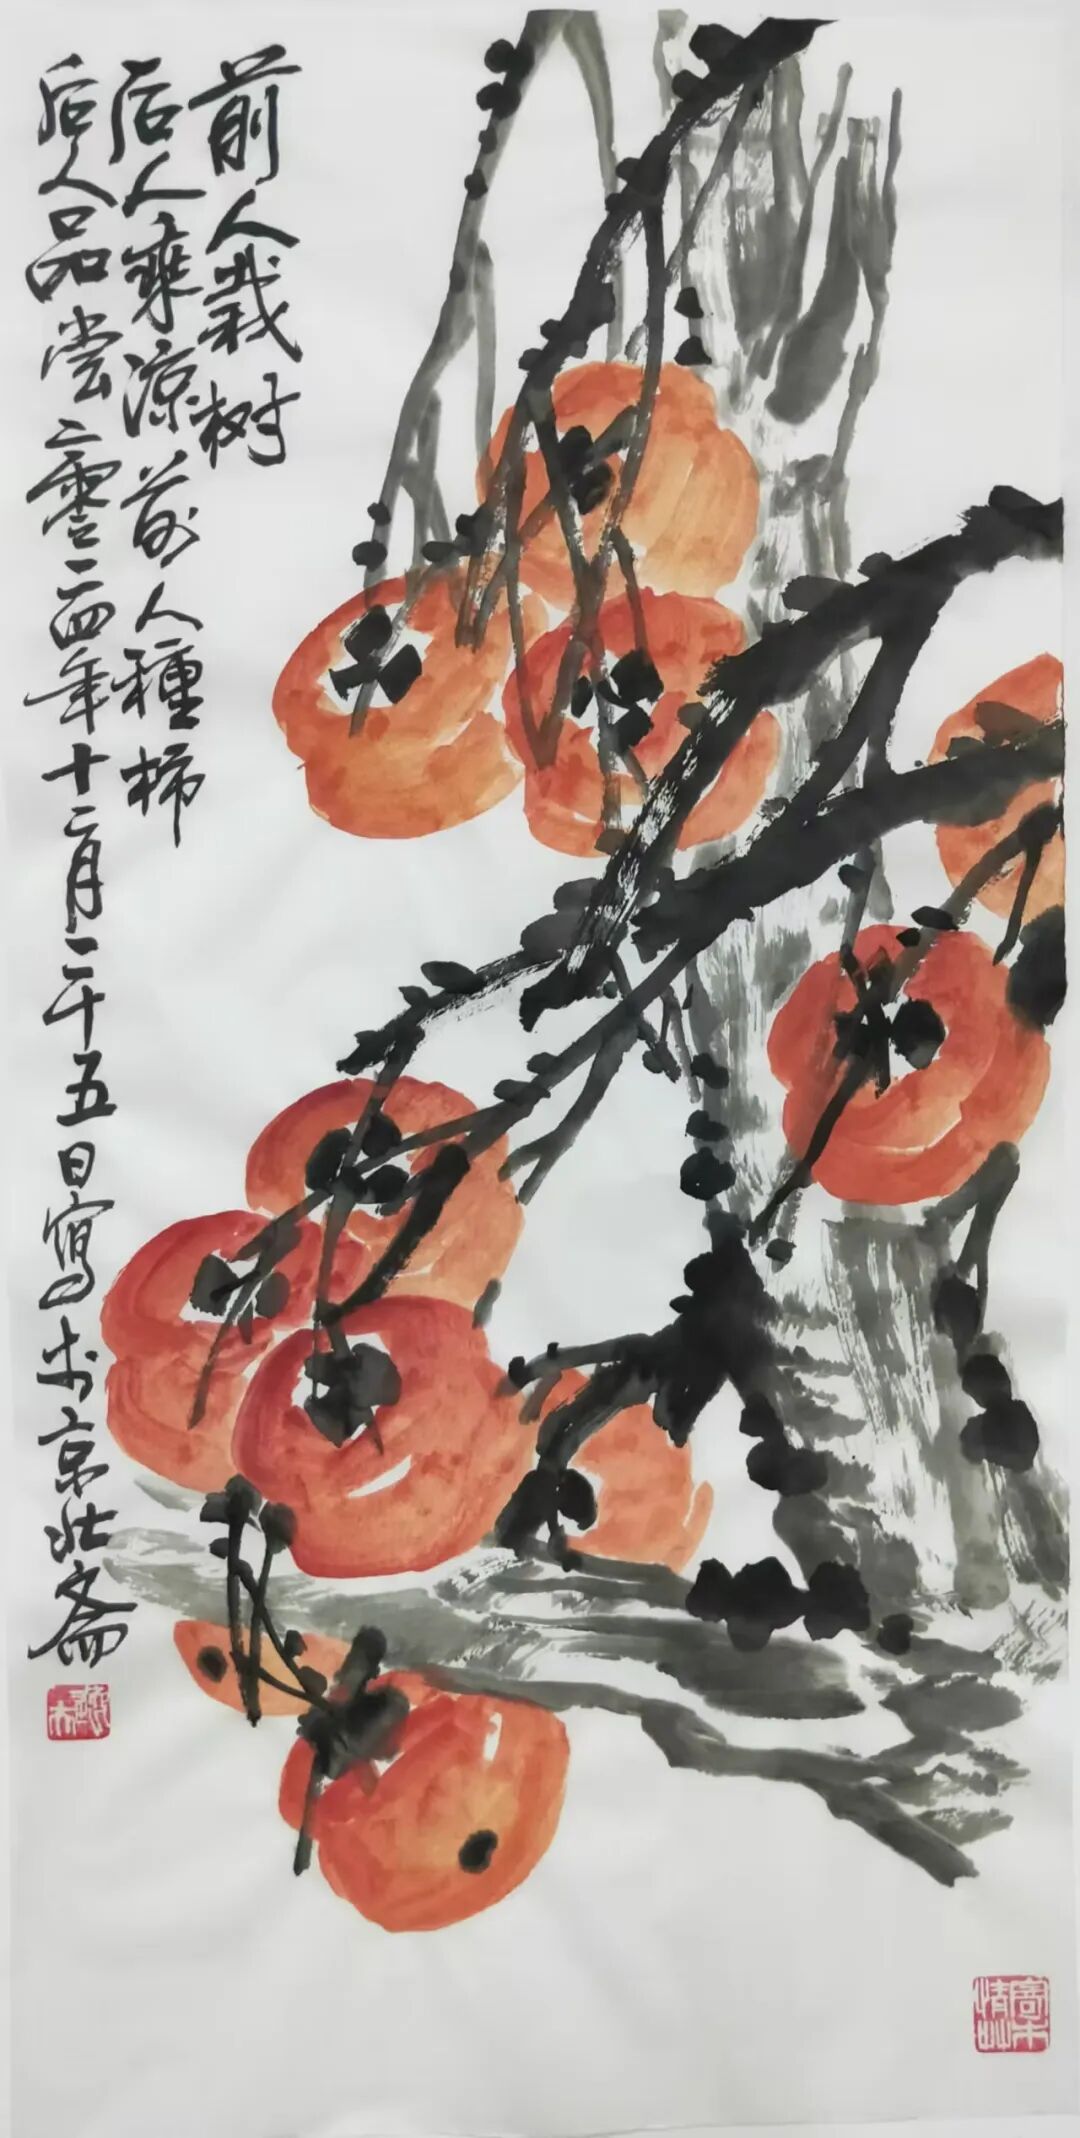 前人栽树
后人乘凉前人種柿
后人品尝二零二四年十二月二十五日寫於京北斋